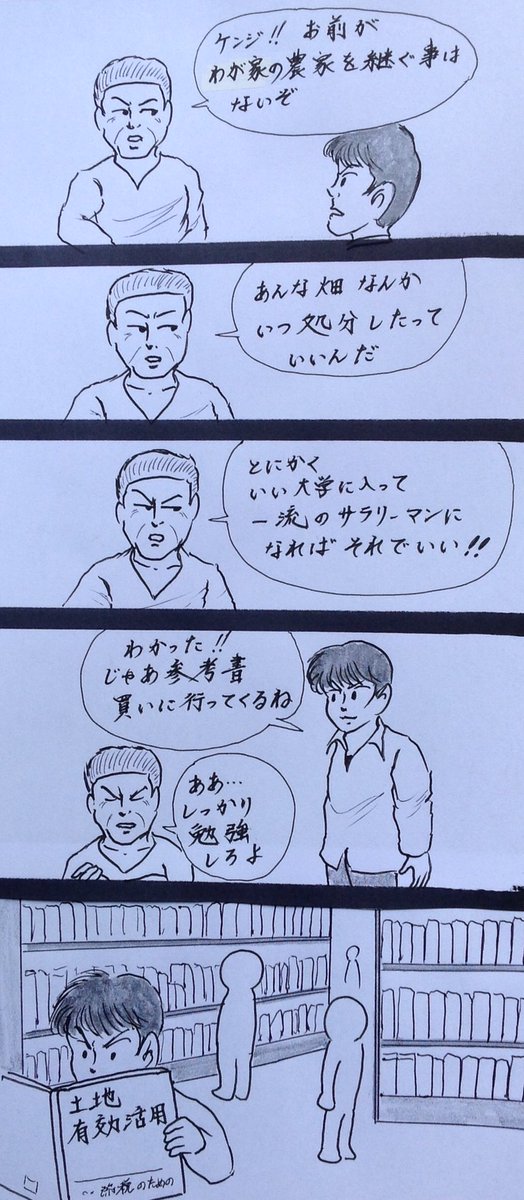 ケンジ!! お前が
わが家の農家を継ぐ事は
ないぞ
あんな畑なんか
いつ処分したって
いいんだ
とにかく
いい大学に入って
一流のサラリーマンに
なればそれでいい!!
わかった!!
じゃあ参考書
買いに行ってくるね
ああ…
しっかり
勉強
しろよ
土地
有効活用
のための